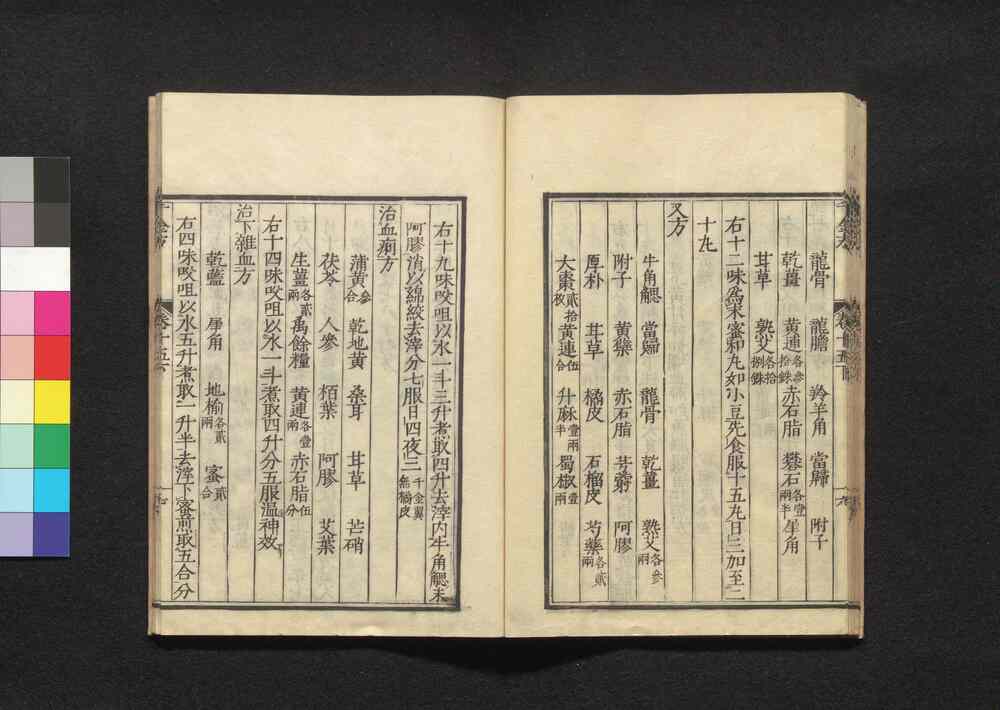 龍骨 龍膽 羚羊角 當歸 附子
乾薑 黃連各參拾銖 赤石脂 礬石各壹兩半 犀角
甘草 熟艾各拾捌銖
右十二味為末蜜和丸如小豆先食服十五丸日三加至二
十丸
又方
牛角䚡 當歸 龍骨 乾薑 熟艾各參兩
附子 黃蘗 赤石脂 芎藭 阿膠
厚朴 甘草 橘皮 石榴皮 芍藥各貳兩
大棗貳拾枚 黃連伍合 升麻壹兩半 蜀椒壹兩
右十九味㕮咀以水一斗三升煮取四升去滓內牛角䚡末
阿膠消以綿絞去滓分七服日四夜三千金翼無橘皮
治血痢方
蒲黃參合 乾地黃 桑耳 甘草 芒硝
茯苓 人參 栢葉 阿膠 艾葉
生薑各貳兩 禹餘糧 黃連各壹兩 赤石脂伍分
右十四味㕮咀以水一斗煮取四升分五服溫神效
治下雜血方
乾藍 犀角 地榆各貳兩 蜜貳合
右四味㕮咀以水五升煮取一升半去滓下蜜煎取五合分
千金方
卷十五下